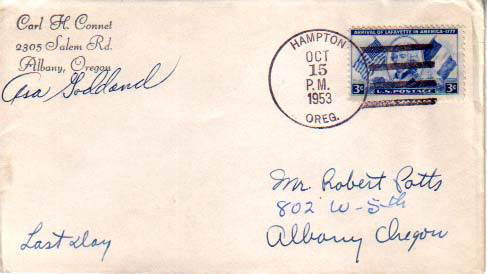 Carl H. Connet
2305 Salem Rd.
Albany, Oregon
Asa Goddard
HAMPTON
OCT
15
P.M.
1953
OREG.
ARRIVAL OF LAFAYETTE IN AMERICA-1777
3¢ U.S. POSTAGE 3¢
Mr Robert Potts
802 W-5th
Albany Oregon
Last Day